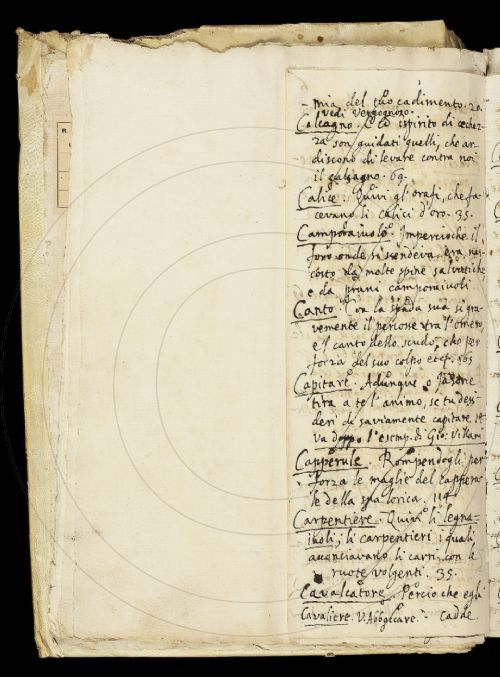 – mia del tuo cadimento. 20.
vedi Vergognoso.
Calcagno. Da ispirito di cechez
za son guidati quelli, che ar
discono di levare contra noi
il calcagno. 69.
Calice. Quivi gl'orafi, che fa
cevano li calici d'oro. 35.
Camporaiuolo. Impercioche il
foro onde si scendeva, era nas
costo da molte spine salvatiche
e da pruni camporaiuoli
Canto. Con la spada sua si gra
vemente il percosse tra l'omero,
e'l canto dello scudo, che per
forza del suo colpo etc. 165
Capitare. Adunque o Jasone
tira a te l'animo, se tu desi
deri di saviamente capitare. 14
Va doppo l'esemp. di Gio: Villani
Capperule. Rompendogli per
forza le maglie del cappero
le della sua lorica. 114
Carpentiere. Quivi li legna
iuoli; li carpentieri i quali
acconciavano li carri con le
ruote volgenti. 35.
Cavalcatore. Percio che egli
Cavaliere. V. Abboccare. – cadde